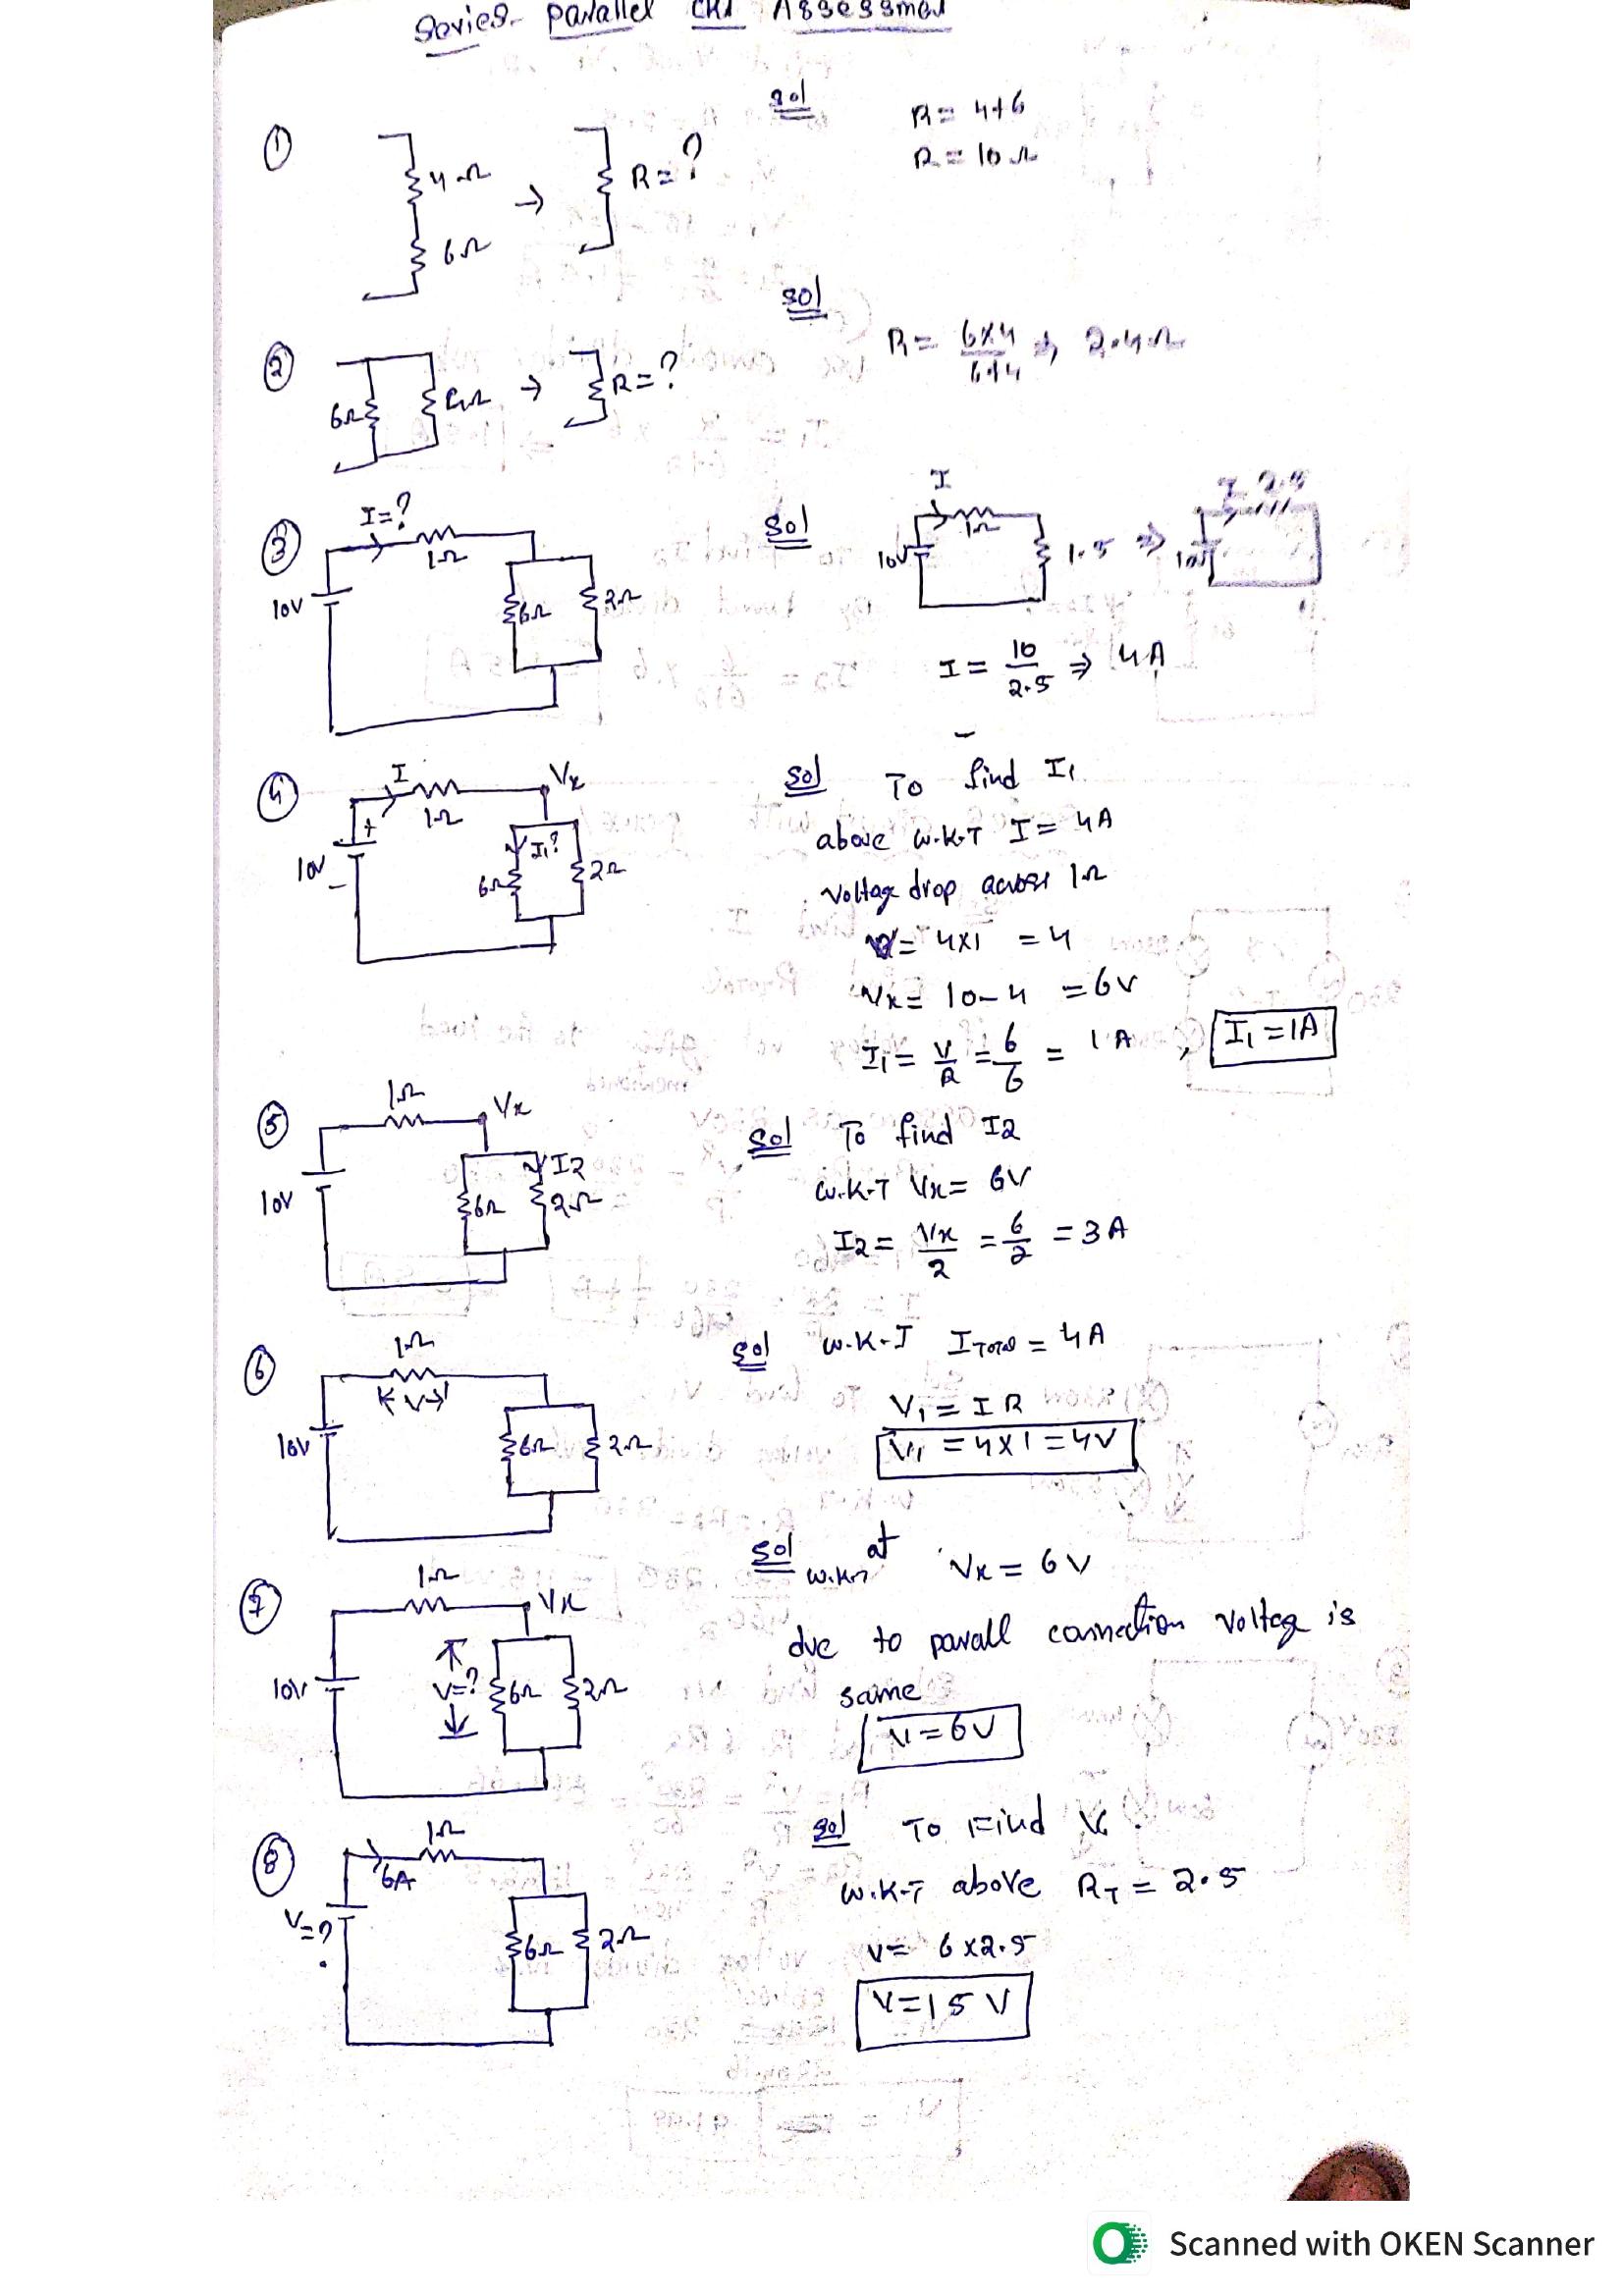 Series- Parallel CKt Assessmen
① 4Ω 6Ω → R=?
sol
R= 4+6
R= 10Ω
② 6Ω 4Ω → R=?
sol
R= 6x4/6+4 ⇒ 2.4Ω
③ I=? 1Ω 10V 6Ω 2Ω
sol
I 1Ω 10V 1.5 ⇒ I 2.5 10V
I = 10/2.5 ⇒ 4A
④ I 1Ω Vx + 10V - I1? 6Ω 2Ω
sol To find I1
above W.K.T I= 4A
Voltage drop across 1Ω
V= 4x1 = 4
Vx= 10-4 =6V
I1= V/R =6/6 = 1A , I1=1A
⑤ 1Ω Vx 10V 6Ω I2 2Ω
sol To find I2
W.K.T Vx= 6V
I2= Vx/2 =6/2 =3A
⑥ 1Ω V 10V 6Ω 2Ω
sol W.K.T ITotal = 4A
V1= I R
V1 =4x1=4V
⑦ 1Ω Vx 10V V=? 6Ω 2Ω
sol W.K.T at Vx= 6V
due to parall connection voltage is
same
V=6V
⑧ 1Ω 6A V=? 6Ω 2Ω
sol To Find V.
W.K.T above RT = 2.5
V= 6x2.5
V=15V
Scanned with OKEN Scanner